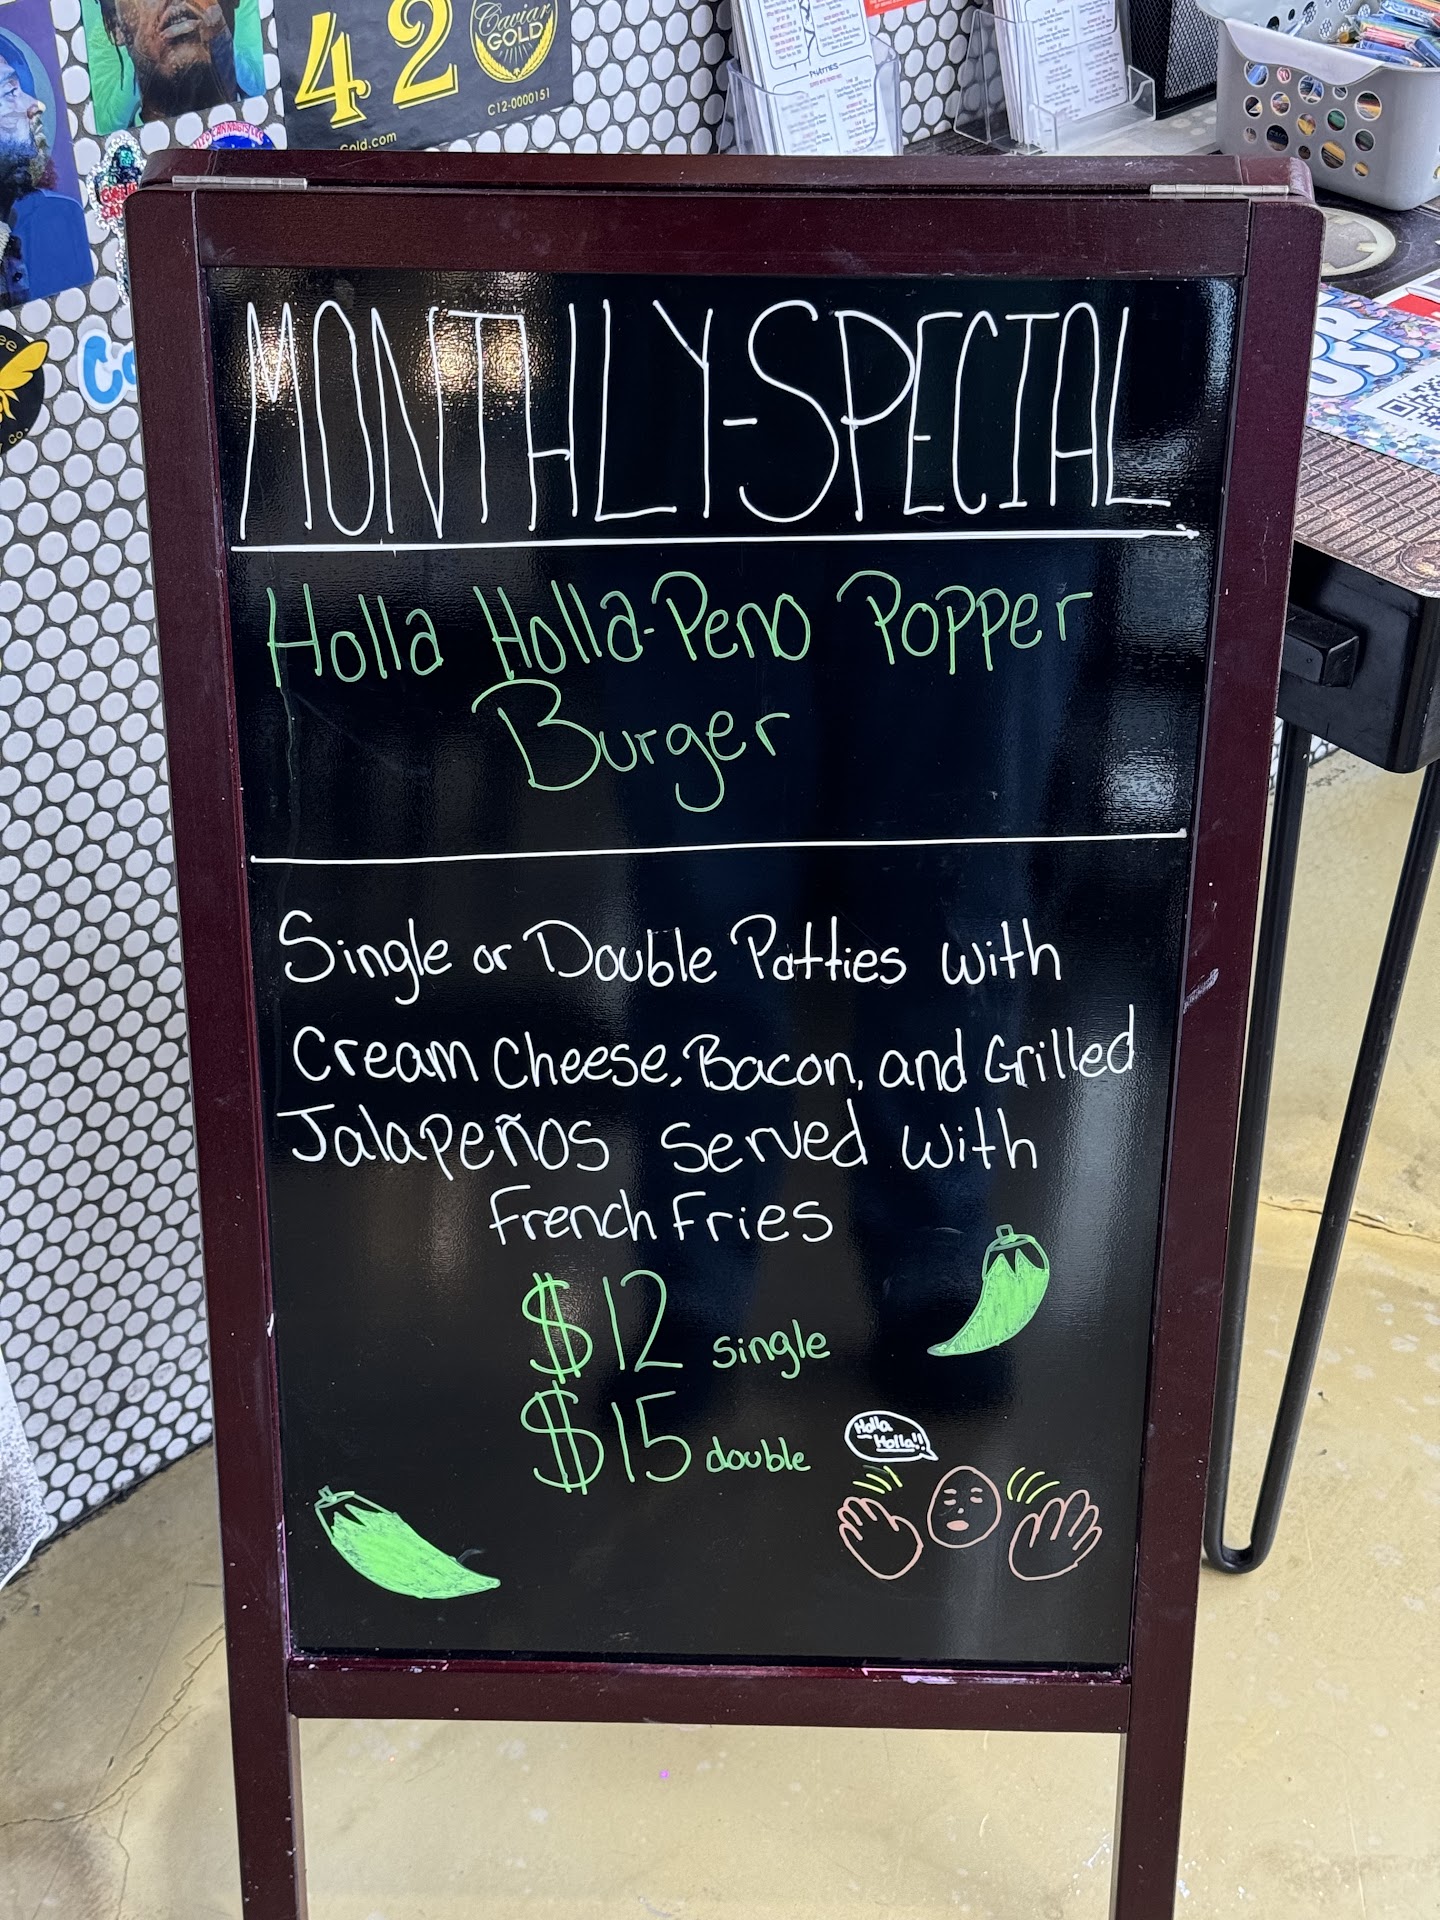 420
Caviar
GOLD
C12-0000151
gold.com
PHATTIES
MONTHLY-SPECIAL
Holla Holla-Peno Popper
Burger
Single or Double Patties with
Cream Cheese, Bacon, and Grilled
Jalapeños served with
French Fries
$12 single
$15 double
Holla
Holla!!